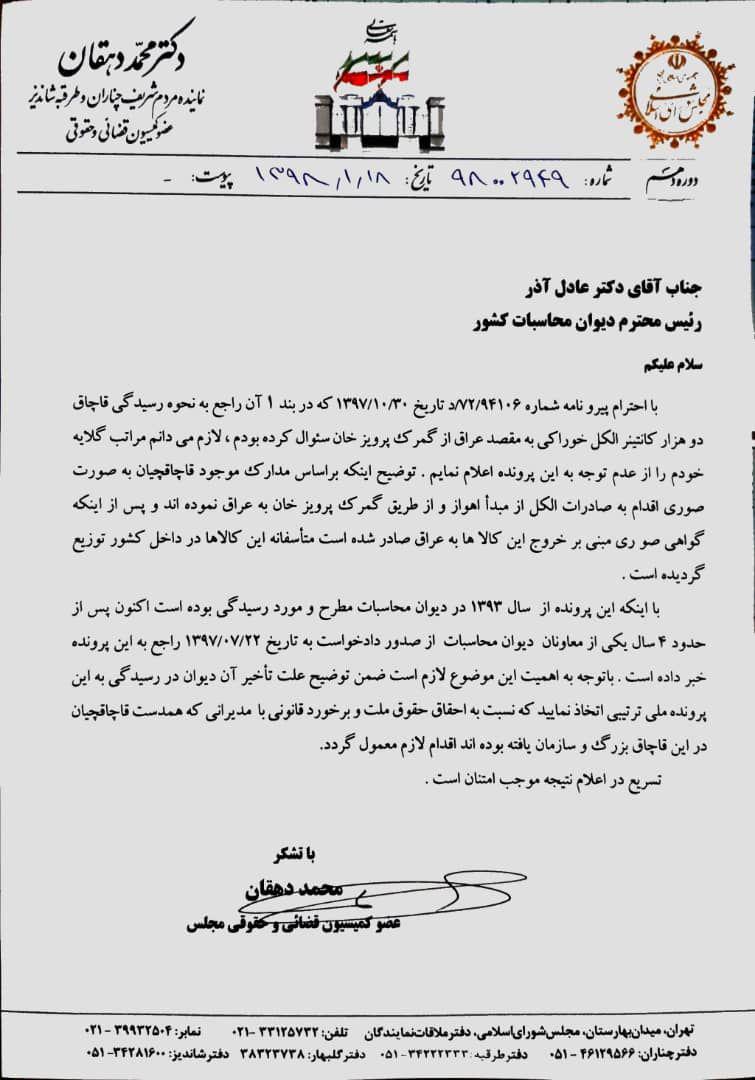 دکتر محمّد دهقان
نماینده مردم شریف چناران و طرقبه شاندیز
عضو کمیسیون قضائی و حقوقی
جمهوری اسلامی ایران
مجلس شورای اسلامی
دوره دهم
شماره: ۹۸۰۰۲۹۴۹ تاریخ: ۱۳۹۸/۱/۱۸ پیوست: -
جناب آقای دکتر عادل آذر
رئیس محترم دیوان محاسبات کشور
سلام علیکم
با احترام پیرو نامه شماره ۷۲/۹۴۱۰۶/د تاریخ ۱۳۹۷/۱۰/۳۰ که در بند ۱ آن راجع به نحوه رسیدگی قاچاق
دو هزار کانتینر الکل خوراکی به مقصد عراق از گمرک پرویز خان سئوال کرده بودم ، لازم می دانم مراتب گلایه
خودم را از عدم توجه به این پرونده اعلام نمایم . توضیح اینکه براساس مدارک موجود قاچاقچیان به صورت
صوری اقدام به صادرات الکل از مبدأ اهواز و از طریق گمرک پرویز خان به عراق نموده اند و پس از اینکه
گواهی صو ری مبنی بر خروج این کالا ها به عراق صادر شده است متأسفانه این کالاها در داخل کشور توزیع
گردیده است .
با اینکه این پرونده از سال ۱۳۹۳ در دیوان محاسبات مطرح و مورد رسیدگی بوده است اکنون پس از
حدود ۴ سال یکی از معاونان دیوان محاسبات از صدور دادخواست به تاریخ ۱۳۹۷/۰۷/۲۲ راجع به این پرونده
خبر داده است . باتوجه به اهمیت این موضوع لازم است ضمن توضیح علت تأخیر آن دیوان در رسیدگی به این
پرونده ملی ترتیبی اتخاذ نمایید که نسبت به احقاق حقوق ملت و برخورد قانونی با مدیرانی که همدست قاچاقچیان
در این قاچاق بزرگ و سازمان یافته بوده اند اقدام لازم معمول گردد.
تسریع در اعلام نتیجه موجب امتنان است .
با تشکر
محمد دهقان
عضو کمیسیون قضائی و حقوقی مجلس
تهران، میدان بهارستان، مجلس شورای اسلامی، دفتر ملاقات نمایندگان تلفن: ۳۳۱۲۵۷۳۲ -۰۲۱ نمابر: ۳۹۹۳۲۵۰۴ - ۰۲۱
دفتر چناران: ۴۶۱۲۹۵۶۶ - ۰۵۱ دفتر طرقبه: ۳۴۲۲۲۳۳۳-۰۵۱ دفتر گلبهار: ۳۸۳۲۳۷۳۸ دفتر شاندیز: ۳۴۲۸۱۶۰۰-۰۵۱